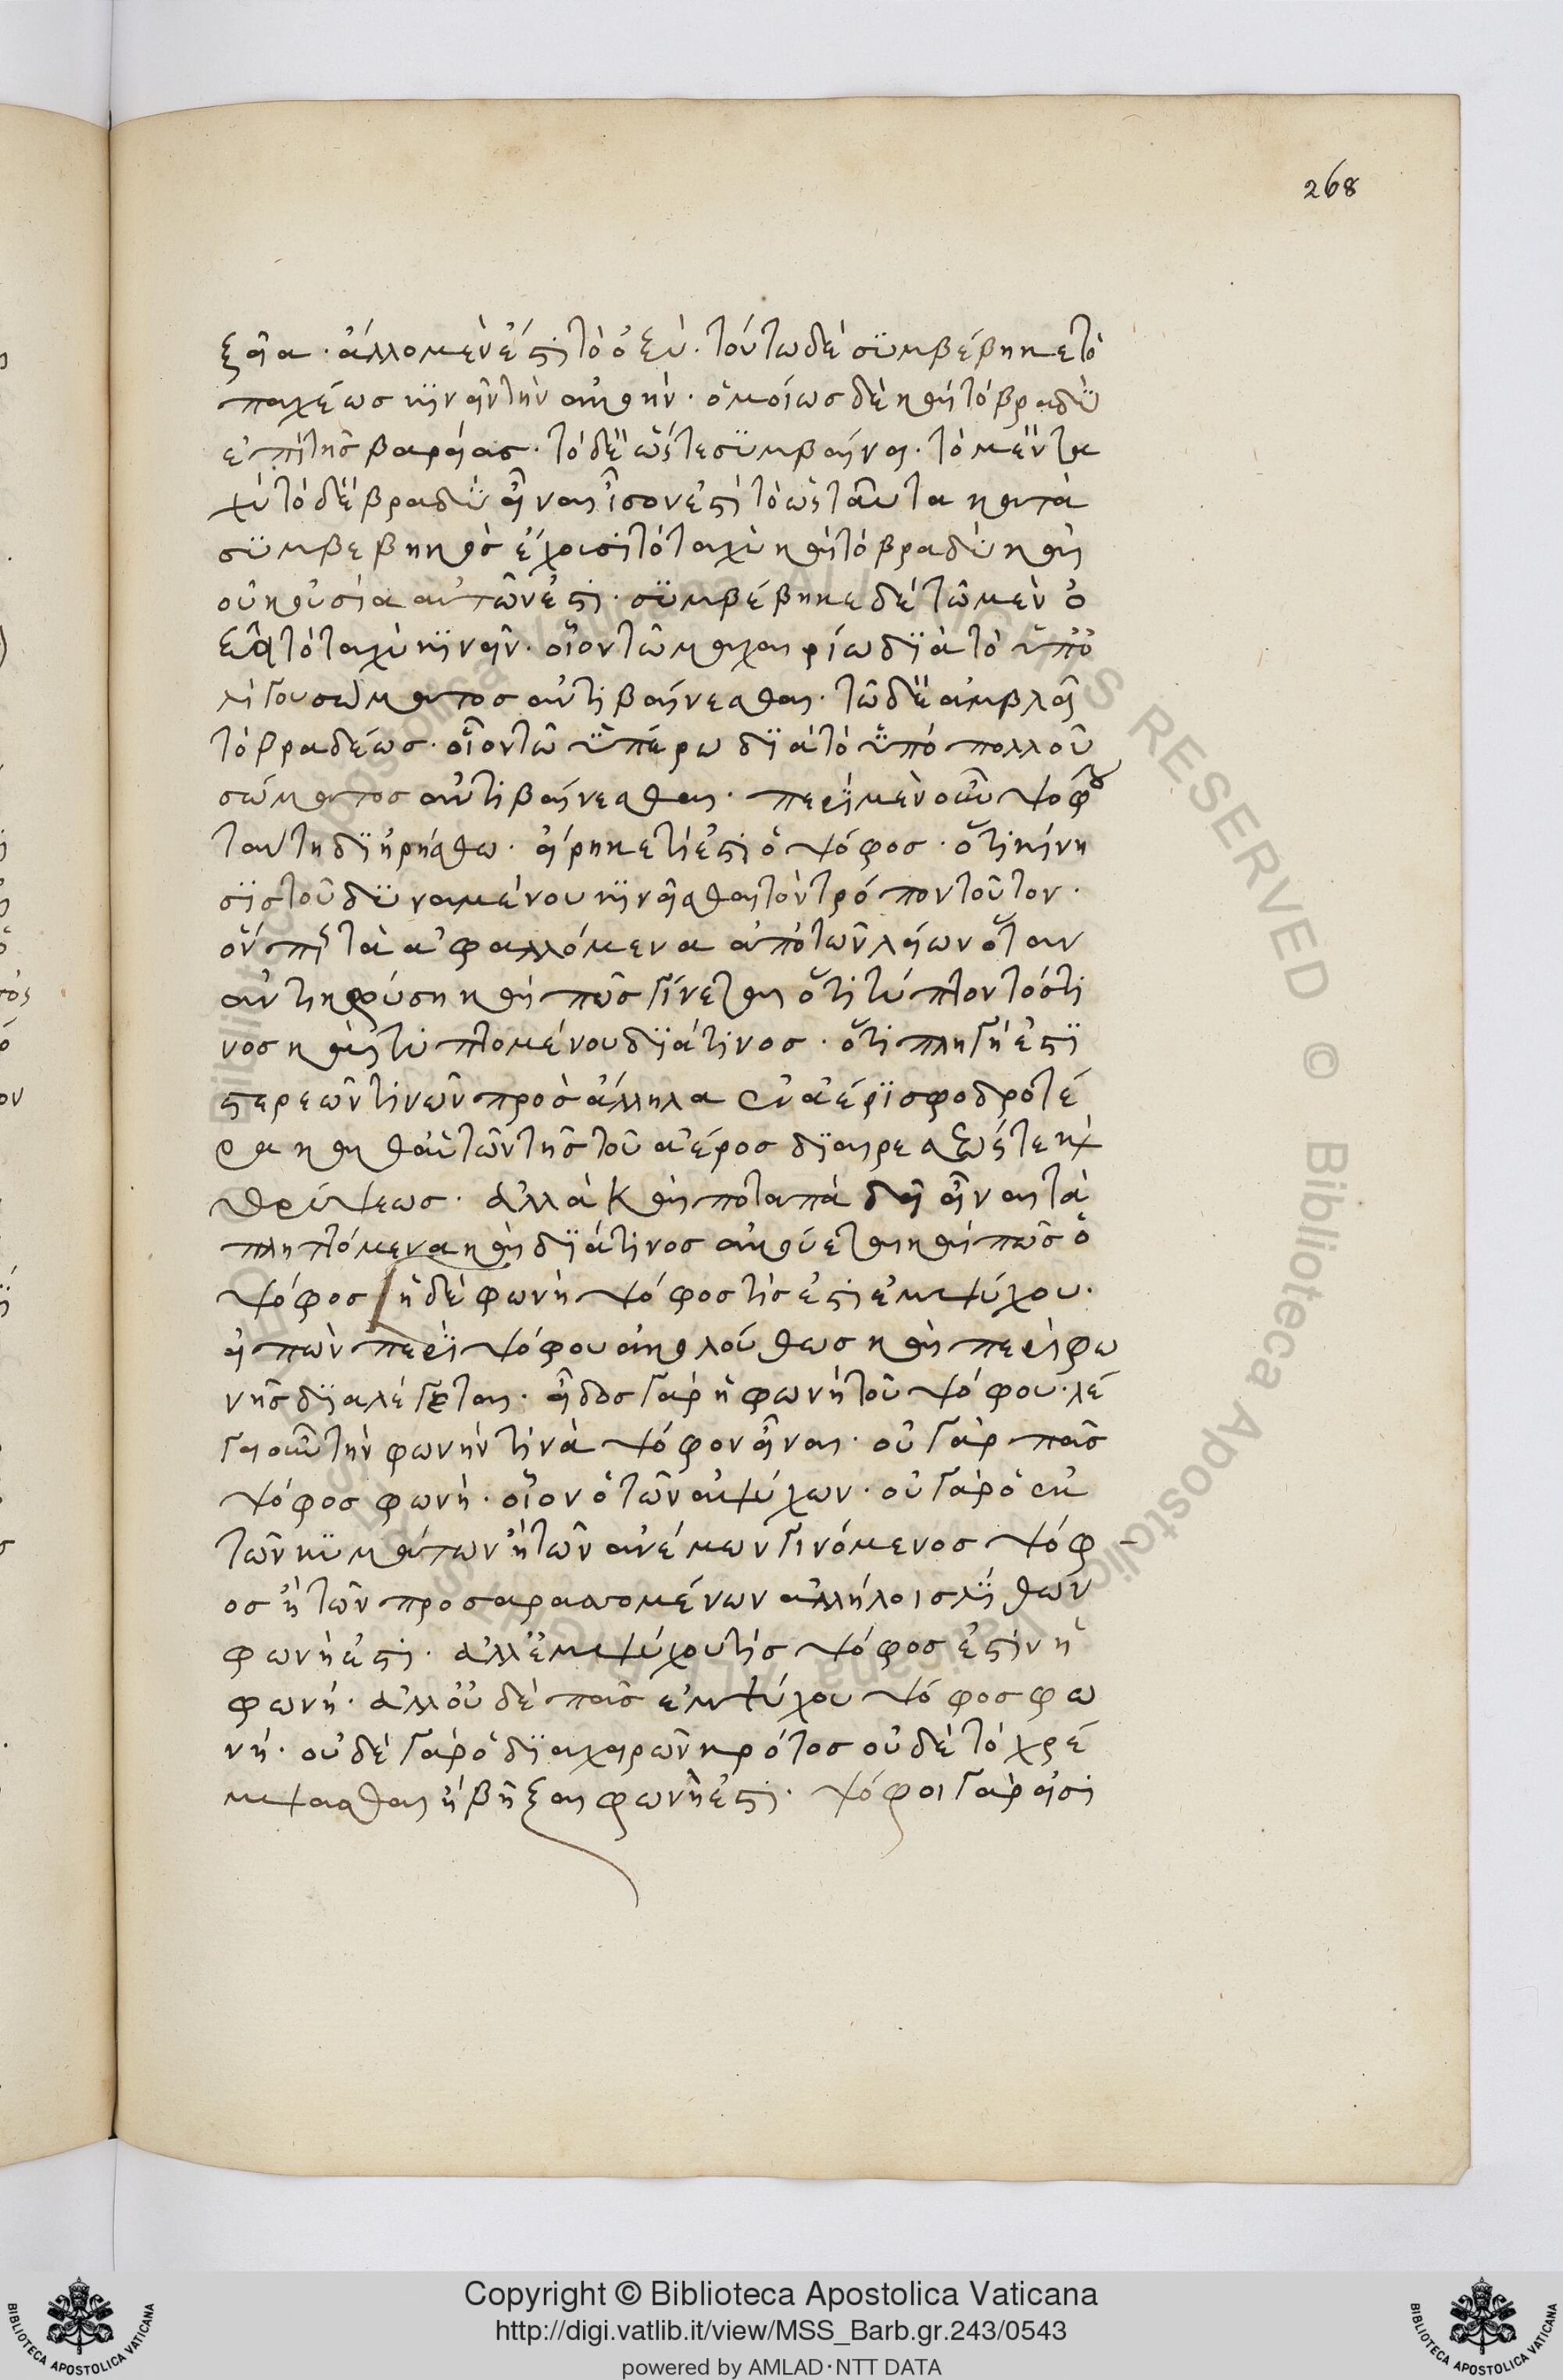 268
ξεῖα· ἄλλο μὲν ἐστὶ τὸ ὀξύ· τούτω δὲ συμβέβηκε τὸ
παχέως κινεῖν τὴν ἀκοήν· ὁμοίως δὲ καὶ τὸ βραδὺ
ἐπὶ τῆς βαρείας· τὸ δὲ ὥστε συμβαίνει· τὸ μὲν τα
χὺ τὸ δὲ βραδὺ εἶναι ἴσον ἐστὶ τὸ ὥστ' αὐτὰ κατὰ
συμβεβηκὸς ἔχουσι τὸ ταχὺ καὶ τὸ βραδὺ καὶ
οὐκ οὐσία αὐτῶν ἐστι· συμβέβηκε δὲ τῶ μὲν ὀ
ξεῖ τὸ ταχὺ κινεῖν· οἷον τῶ μαχαιρίω διὰ τὸ ὑπὸ
λίγου σώματος ἀντιβαίνεσθαι· τῶ δὲ ἀμβλεῖ
τὸ βραδέως· οἷον τῶ ὑπέρω διὰ τὸ ὑπὸ πολλοῦ
σώματος ἀντιβαίνεσθαι· περὶ μὲν οὖν ψόφου
ταύτη διηρήσθω· εἴρηκε τί ἐστι ὁ ψόφος· ὅτι κίνη
σις τοῦ δυναμένου κινεῖσθαι τὸν τρόπον τοῦτον·
ὅνπερ τὰ ἀφαλλόμενα ἀπὸ τῶν λείων ὅταν
ἀντικρούση καὶ πῶς γίνεται ὅτι τύπτοντός τι
νος καὶ τυπτομένου διά τινος· ὅτι πληγή ἐστι
στερεῶν τινῶν πρὸς ἄλληλα ἐν ἀέρι σφοδροτέ
ρα καὶ θᾶττων τῆς τοῦ ἀέρος διαιρέσεώς τε καὶ
θρύψεως· ἀλλὰ καὶ ποταπὰ δεῖ εἶναι τὰ
πληττόμενα καὶ διά τινος ἀκούεται καὶ πῶς ὁ
ψόφος ἡ δὲ φωνὴ ψόφος τίς ἐστι ἐμψύχου·
εἰπὼν περὶ ψόφου ἀκολούθως καὶ περὶ φω
νῆς διαλέγεται· εἶδος γὰρ ἡ φωνὴ τοῦ ψόφου· λέ
γει οὖν τὴν φωνὴν τινὰ ψόφον εἶναι· οὐ γὰρ πᾶς
ψόφος φωνή· οἷον ὁ τῶν ἀψύχων· οὐ γὰρ ὁ ἐκ
τῶν κυμάτων ἢ τῶν ἀνέμων γινόμενος ψόφ
ος ἢ τῶν προσαρασσομένων ἀλλήλοις λίθων
φωνή ἐστι· ἀλλ' ἐμψύχου τίς ψόφος ἐστὶν ἡ
φωνή· ἀλλ' οὐδὲ πᾶς ἐμψύχου ψόφος φω
νή· οὐδὲ γὰρ ὁ διὰ χειρῶν κρότος οὐδὲ τὸ χρέ
μψασθαι ἢ βῆξαι φωνή ἐστι· ψόφοι γὰρ εἰσὶ
Copyright © Biblioteca Apostolica Vaticana
http://digi.vatlib.it/view/MSS_Barb.gr.243/0543
powered by AMLAD·NTT DATA